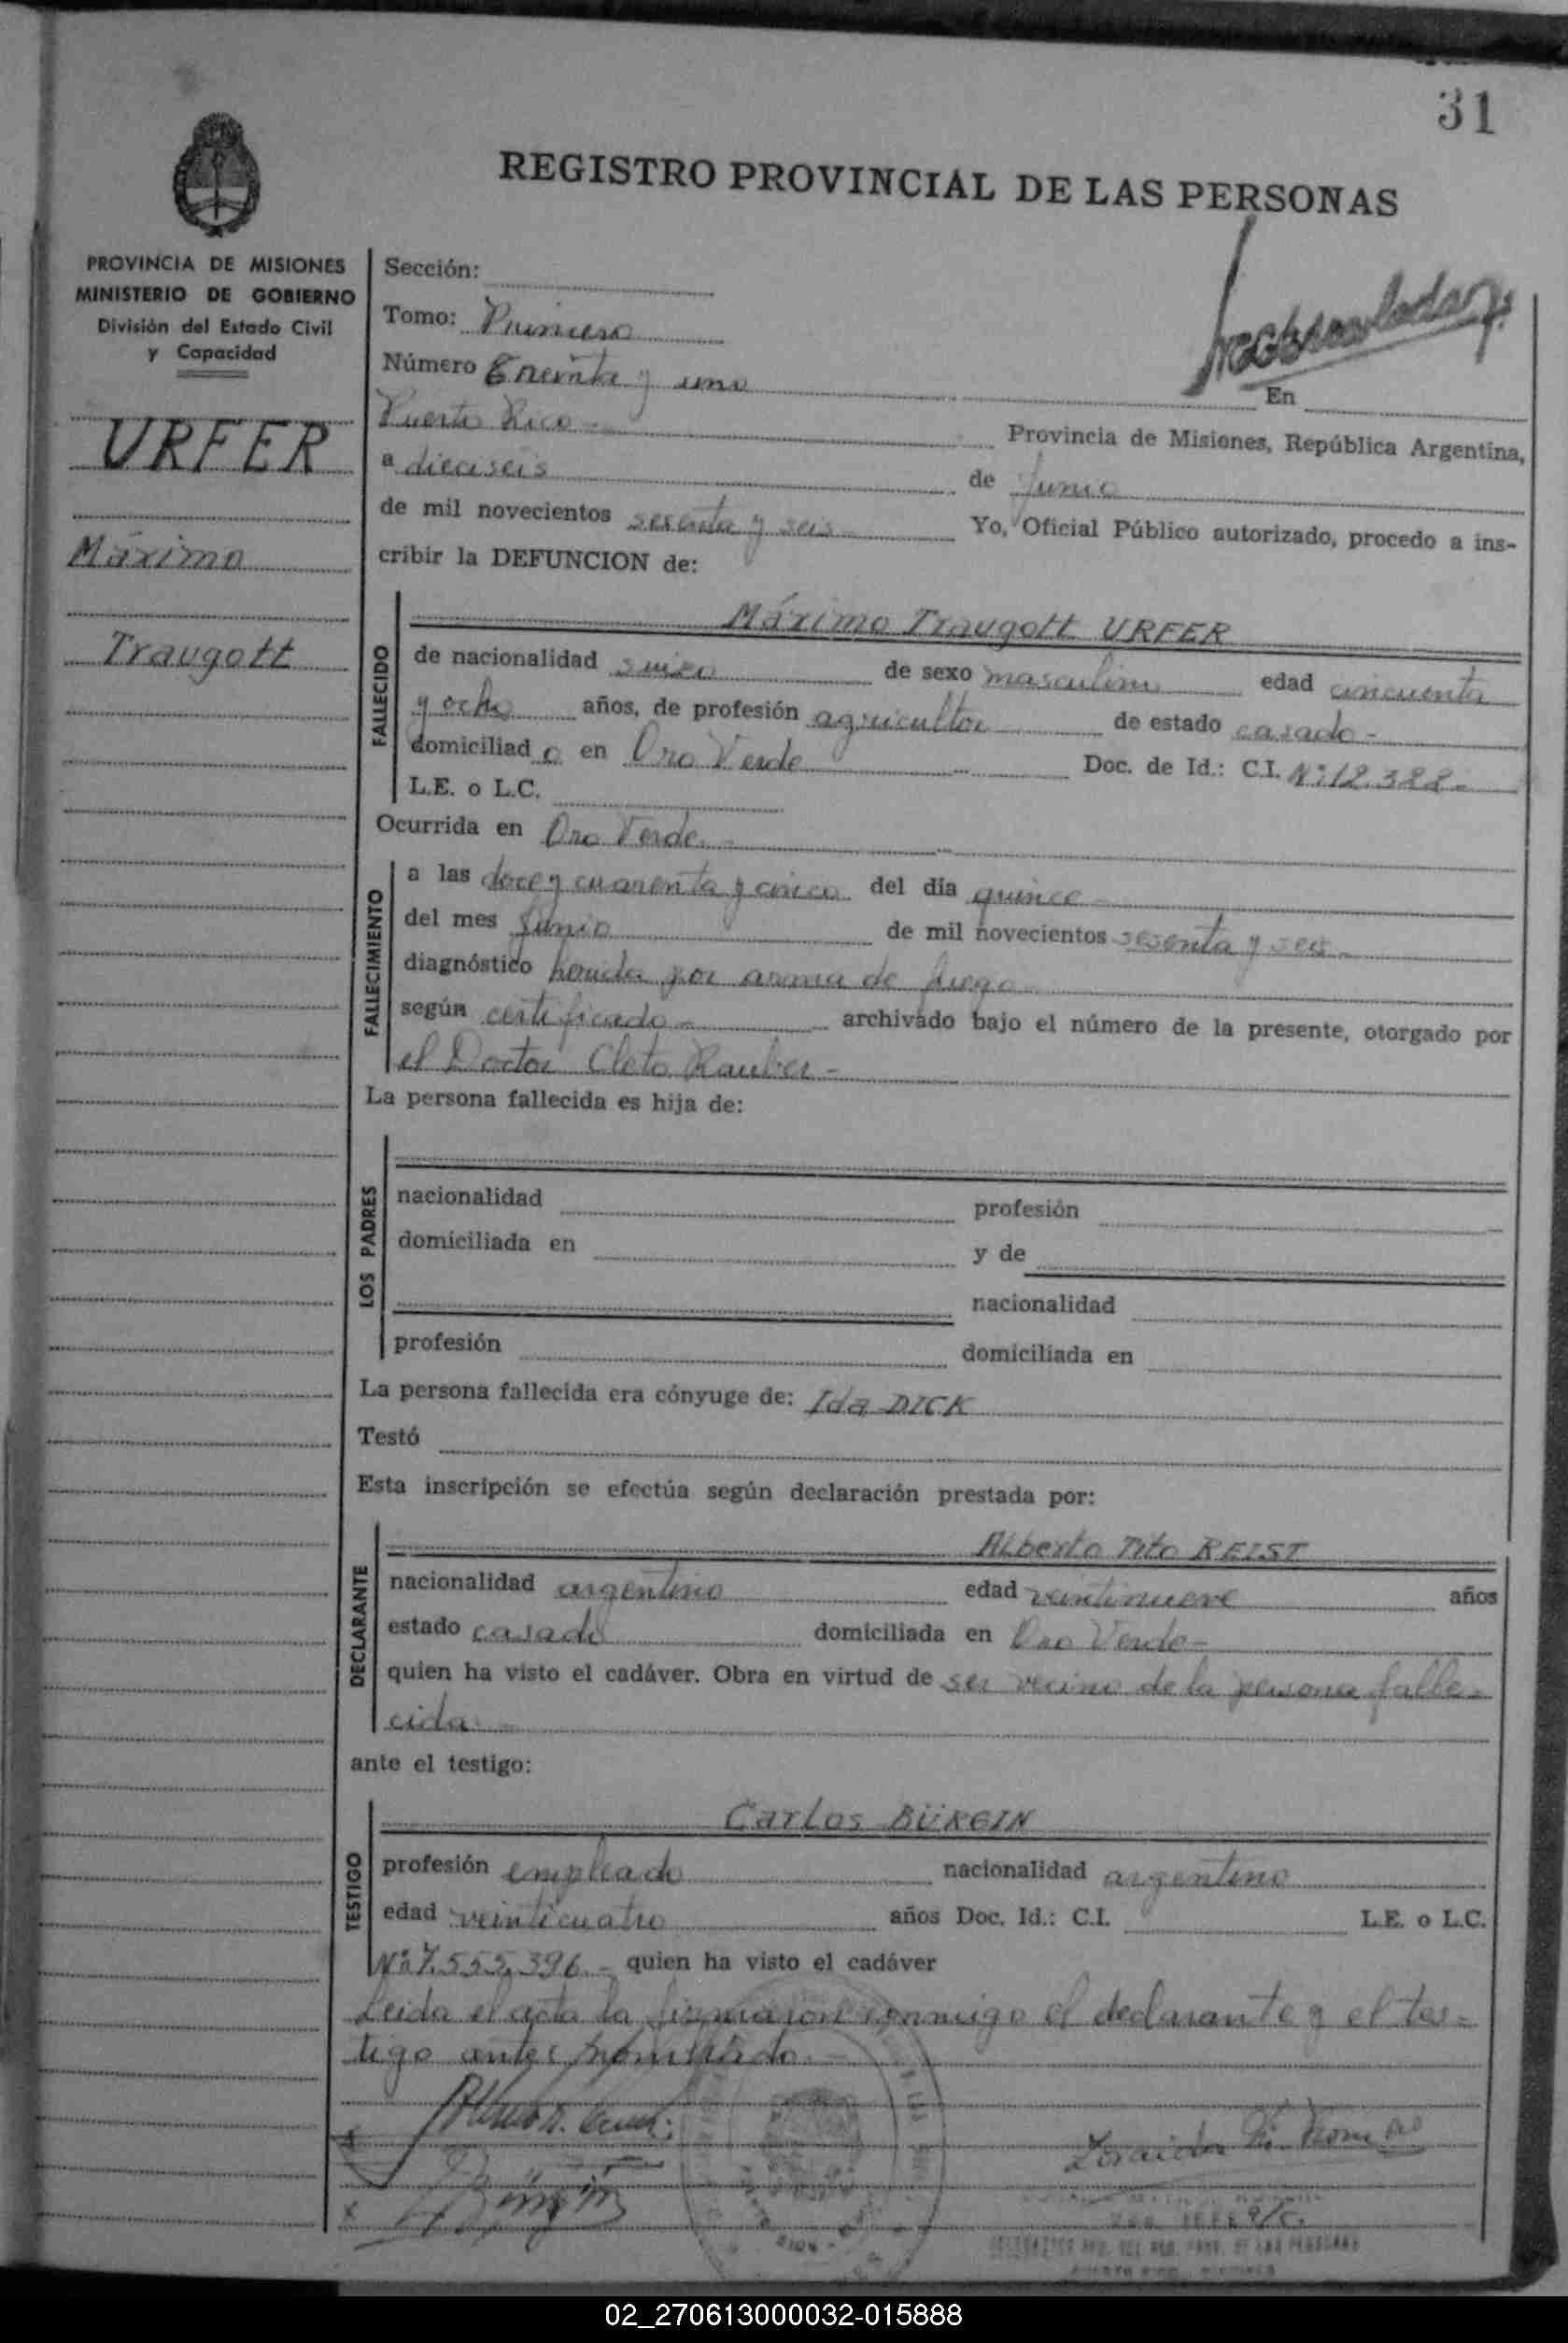 31
REGISTRO PROVINCIAL DE LAS PERSONAS
PROVINCIA DE MISIONES
MINISTERIO DE GOBIERNO
División del Estado Civil
y Capacidad
URFER
Máximo
Traugott
Sección:
Tomo: Primero
Número Treinta y uno En
Puerto Rico - Provincia de Misiones, República Argentina,
a dieciseis de Junio
de mil novecientos sesenta y seis - Yo, Oficial Público autorizado, procedo a ins-
cribir la DEFUNCION de:
FALLECIDO
Máximo Traugott URFER
de nacionalidad suizo de sexo masculino edad cincuenta
y ocho años, de profesión agricultor de estado casado -
domiciliad o en Oro Verde Doc. de Id.: C.I. Nº 12.388 -
L.E. o L.C.
Ocurrida en Oro Verde. -
FALLECIMIENTO
a las doce y cuarenta y cinco del día quince -
del mes Junio de mil novecientos sesenta y seis -
diagnóstico herida por arma de fuego
según certificado - archivado bajo el número de la presente, otorgado por
el Doctor Cleto Rauber -
La persona fallecida es hija de:
LOS PADRES
nacionalidad profesión
domiciliada en y de
nacionalidad
profesión domiciliada en
La persona fallecida era cónyuge de: Ida DICK
Testó
Esta inscripción se efectúa según declaración prestada por:
DECLARANTE
Alberto Tito REIST
nacionalidad argentino edad veintinueve años
estado casado domiciliada en Oro Verde -
quien ha visto el cadáver. Obra en virtud de ser vecino de la persona falle-
cida -
ante el testigo:
TESTIGO
Carlos BÜRGIN
profesión empleado nacionalidad argentino
edad veinticuatro años Doc. Id.: C.I. L.E. o L.C.
Nº 7.555.396. - quien ha visto el cadáver
Leida el acta la firmaron conmigo el declarante y el tes-
tigo antes nombrado. -
02_270613000032-015888